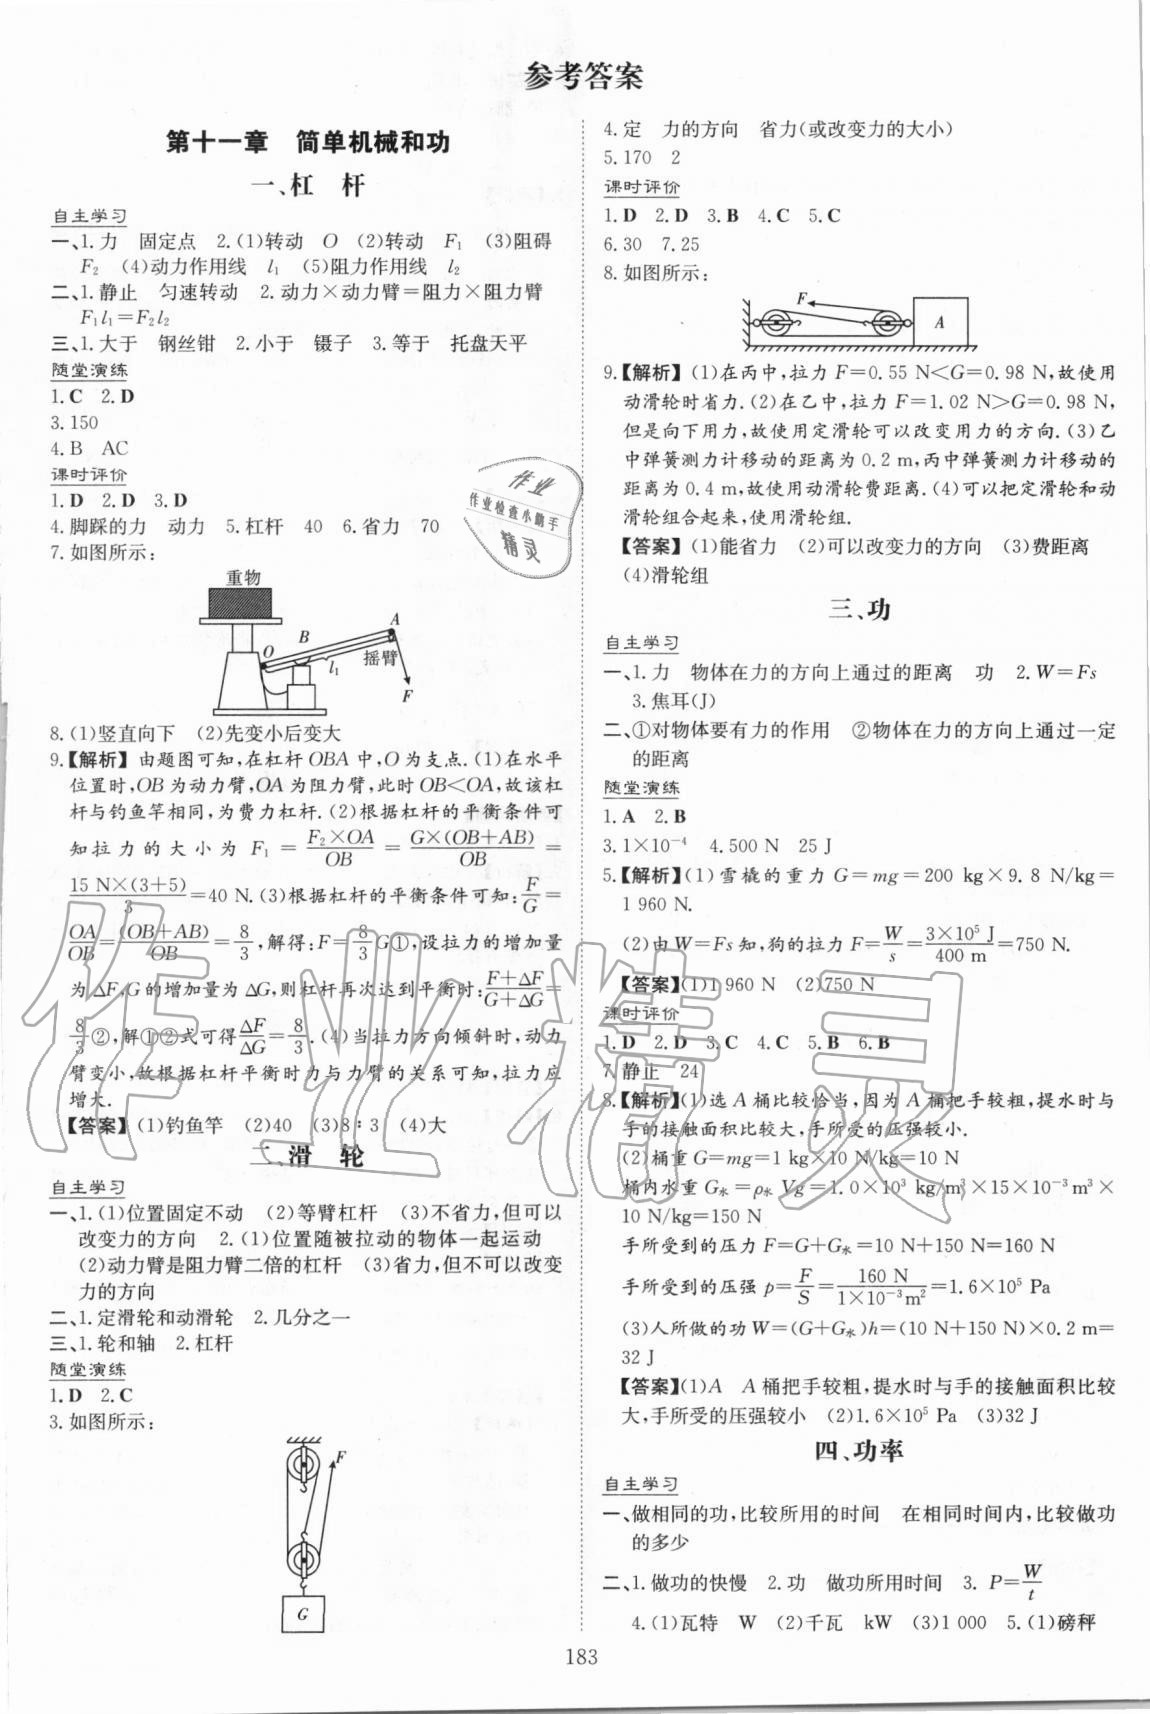 参考答案
第十一章 简单机械和功
一、杠 杆
自主学习
一、1.力 固定点 2.(1)转动 O (2)转动 F₁ (3)阻碍
F₂ (4)动力作用线 l₁ (5)阻力作用线 l₂
二、1.静止 匀速转动 2.动力×动力臂=阻力×阻力臂
F₁l₁=F₂l₂
三、1.大于 钢丝钳 2.小于 镊子 3.等于 托盘天平
随堂演练
1.C 2.D
3.150
4.B AC
课时评价
1.D 2.D 3.D
4.脚踩的力 动力 5.杠杆 40 6.省力 70
7.如图所示:
重物
A
B
O
l₁
摇臂
F
8.(1)竖直向下 (2)先变小后变大
9.【解析】由题图可知,在杠杆OBA中,O为支点.(1)在水平
位置时,OB为动力臂,OA为阻力臂,此时OB<OA,故该杠
杆与钓鱼竿相同,为费力杠杆.(2)根据杠杆的平衡条件可
知拉力的大小为 F₁ = F₂×OA/OB = G×(OB+AB)/OB =
15 N×(3+5)/3=40 N.(3)根据杠杆的平衡条件可知:F/G=
OA/OB=(OB+AB)/OB=8/3,解得:F=8/3G①,设拉力的增加量
为△F,G的增加量为△G,则杠杆再次达到平衡时:F+△F/G+△G=
8/3②,解①②式可得△F/△G=8/3.(4)当拉力方向倾斜时,动力
臂变小,故根据杠杆平衡时力与力臂的关系可知,拉力应
增大.
【答案】(1)钓鱼竿 (2)40 (3)8∶3 (4)大
二、滑 轮
自主学习
一、1.(1)位置固定不动 (2)等臂杠杆 (3)不省力,但可以
改变力的方向 2.(1)位置随被拉动的物体一起运动
(2)动力臂是阻力臂二倍的杠杆 (3)省力,但不可以改变
力的方向
二、1.定滑轮和动滑轮 2.几分之一
三、1.轮和轴 2.杠杆
随堂演练
1.D 2.C
3.如图所示:
F
G
4.定 力的方向 省力(或改变力的大小)
5.170 2
课时评价
1.D 2.D 3.B 4.C 5.C
6.30 7.25
8.如图所示:
F
A
9.【解析】(1)在丙中,拉力F=0.55 N<G=0.98 N,故使用
动滑轮时省力.(2)在乙中,拉力F=1.02 N>G=0.98 N,
但是向下用力,故使用定滑轮可以改变用力的方向.(3)乙
中弹簧测力计移动的距离为0.2 m,丙中弹簧测力计移动的
距离为0.4 m,故使用动滑轮费距离.(4)可以把定滑轮和动
滑轮组合起来,使用滑轮组.
【答案】(1)能省力 (2)可以改变力的方向 (3)费距离
(4)滑轮组
三、功
自主学习
一、1.力 物体在力的方向上通过的距离 功 2.W=Fs
3.焦耳(J)
二、①对物体要有力的作用 ②物体在力的方向上通过一定
的距离
随堂演练
1.A 2.B
3.1×10⁻⁴ 4.500 N 25 J
5.【解析】(1)雪橇的重力G=mg=200 kg×9.8 N/kg=
1 960 N.
(2)由W=Fs知,狗的拉力F=W/s=3×10⁵ J/400 m=750 N.
【答案】(1)1 960 N (2)750 N
课时评价
1.D 2.D 3.C 4.C 5.B 6.B
7.静止 24
8.【解析】(1)选A桶比较恰当,因为A桶把手较粗,提水时与
手的接触面积比较大,手所受的压强较小.
(2)桶重G=mg=1 kg×10 N/kg=10 N
桶内水重G水=ρ水Vg=1.0×10³ kg/m³×15×10⁻³m³×
10 N/kg=150 N
手所受到的压力F=G+G水=10 N+150 N=160 N
手所受到的压强p=F/S=160 N/1×10⁻³m²=1.6×10⁵ Pa
(3)人所做的功W=(G+G水)h=(10 N+150 N)×0.2 m=
32 J
【答案】(1)A A桶把手较粗,提水时与手的接触面积比较
大,手所受的压强较小 (2)1.6×10⁵ Pa (3)32 J
四、功率
自主学习
一、做相同的功,比较所用的时间 在相同时间内,比较做功
的多少
二、1.做功的快慢 2.功 做功所用时间 3. P=W/t
4.(1)瓦特 W (2)千瓦 kW (3)1 000 5.(1)磅秤
183
作业
作业检查小助手
精灵
作业精灵